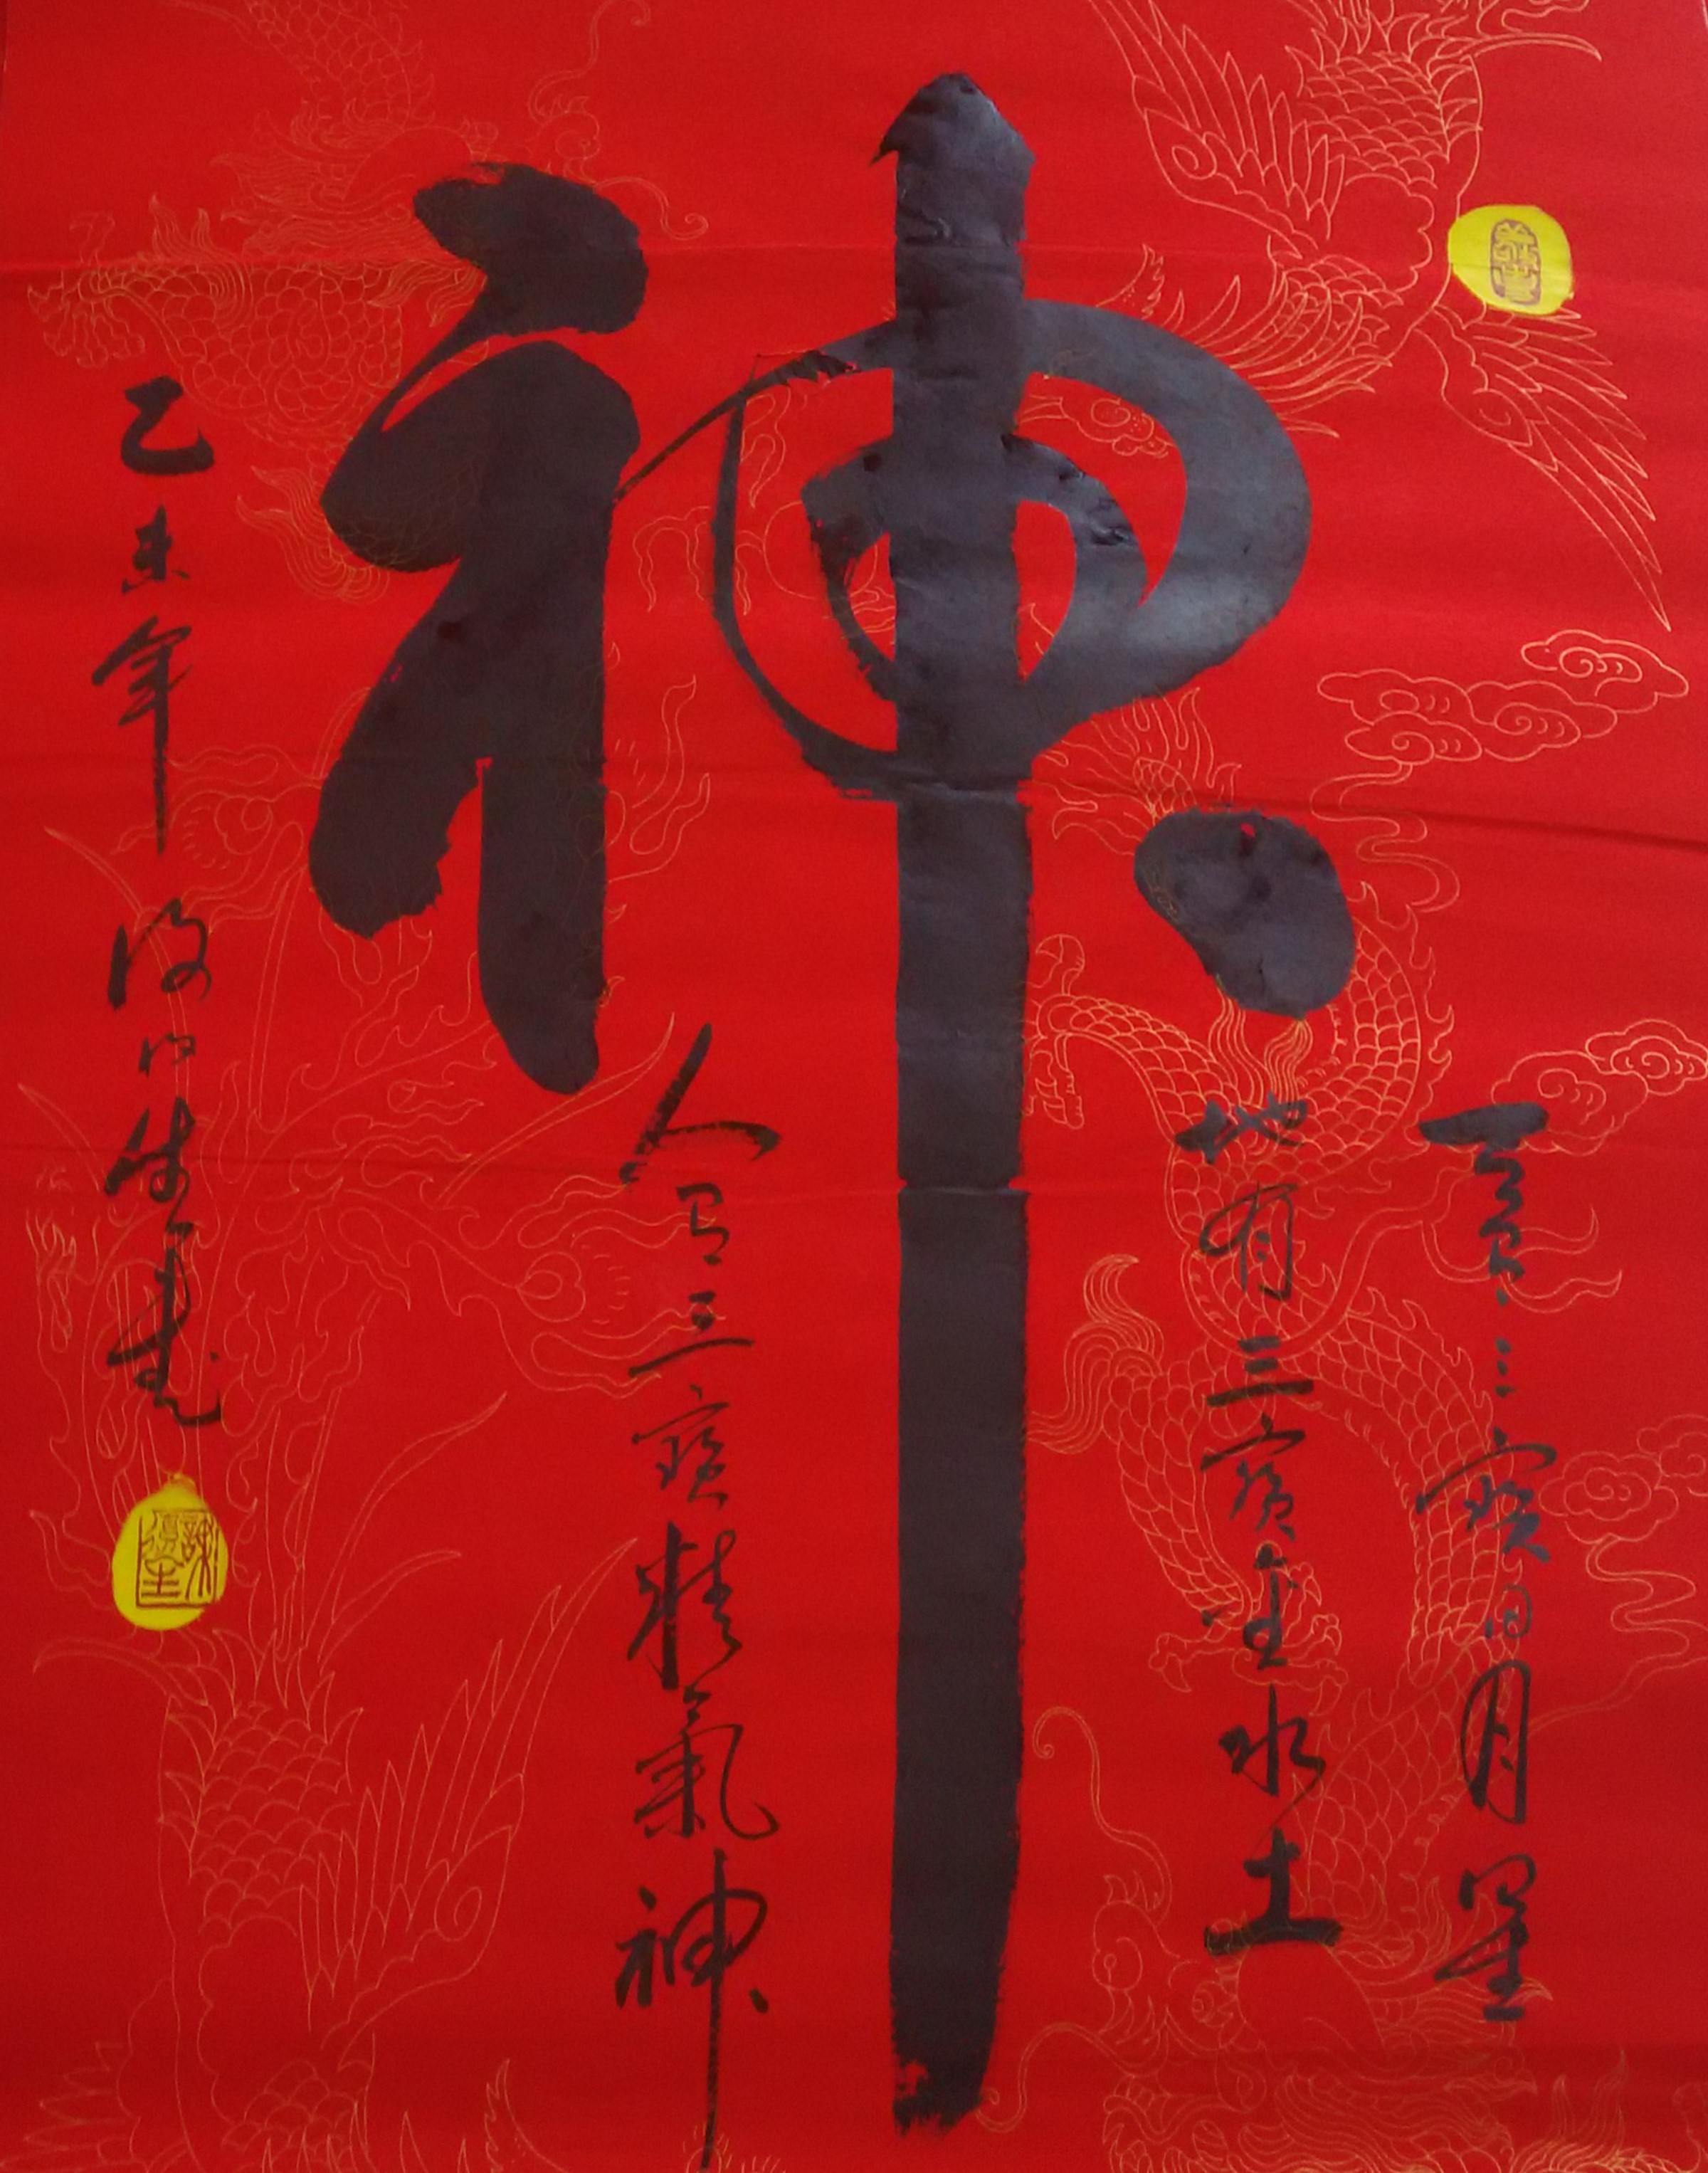 神
天有三寶日月星
地有三寶金水土
人有三寶精氣神
乙未年